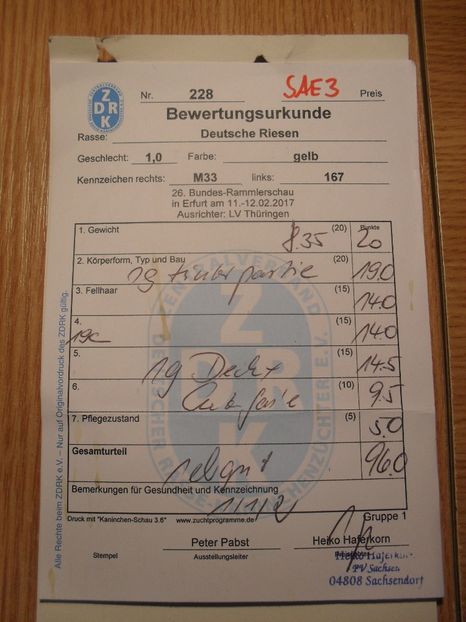 ZDRK
Nr. 228 SAE3 Preis
Bewertungsurkunde
Rasse: Deutsche Riesen
Geschlecht: 1,0 Farbe: gelb
Kennzeichen rechts: M33 links: 167
26. Bundes-Rammlerschau
in Erfurt am 11.-12.02.2017
Ausrichter: LV Thüringen
Punkte
1. Gewicht 8.35 (20) 20
2. Körperform, Typ und Bau (20) 19.0
3. Fellhaar (15) 14.0
4. (15) 14.0
5. (15) 14.5
6. (10) 9.5
7. Pflegezustand (5) 5.0
Gesamturteil 96.0
Bemerkungen für Gesundheit und Kennzeichnung
Druck mit "Kaninchen-Schau 3.6" www.zuchtprogramme.de Gruppe 1
Peter Pabst Heiko Haferkorn
Stempel Ausstellungsleiter
Heiko Haferkorn
PV Sachsen
04808 Sachsendorf
Alle Rechte beim ZDRK e.V. – Nur auf Originalvordruck des ZDRK gültig.